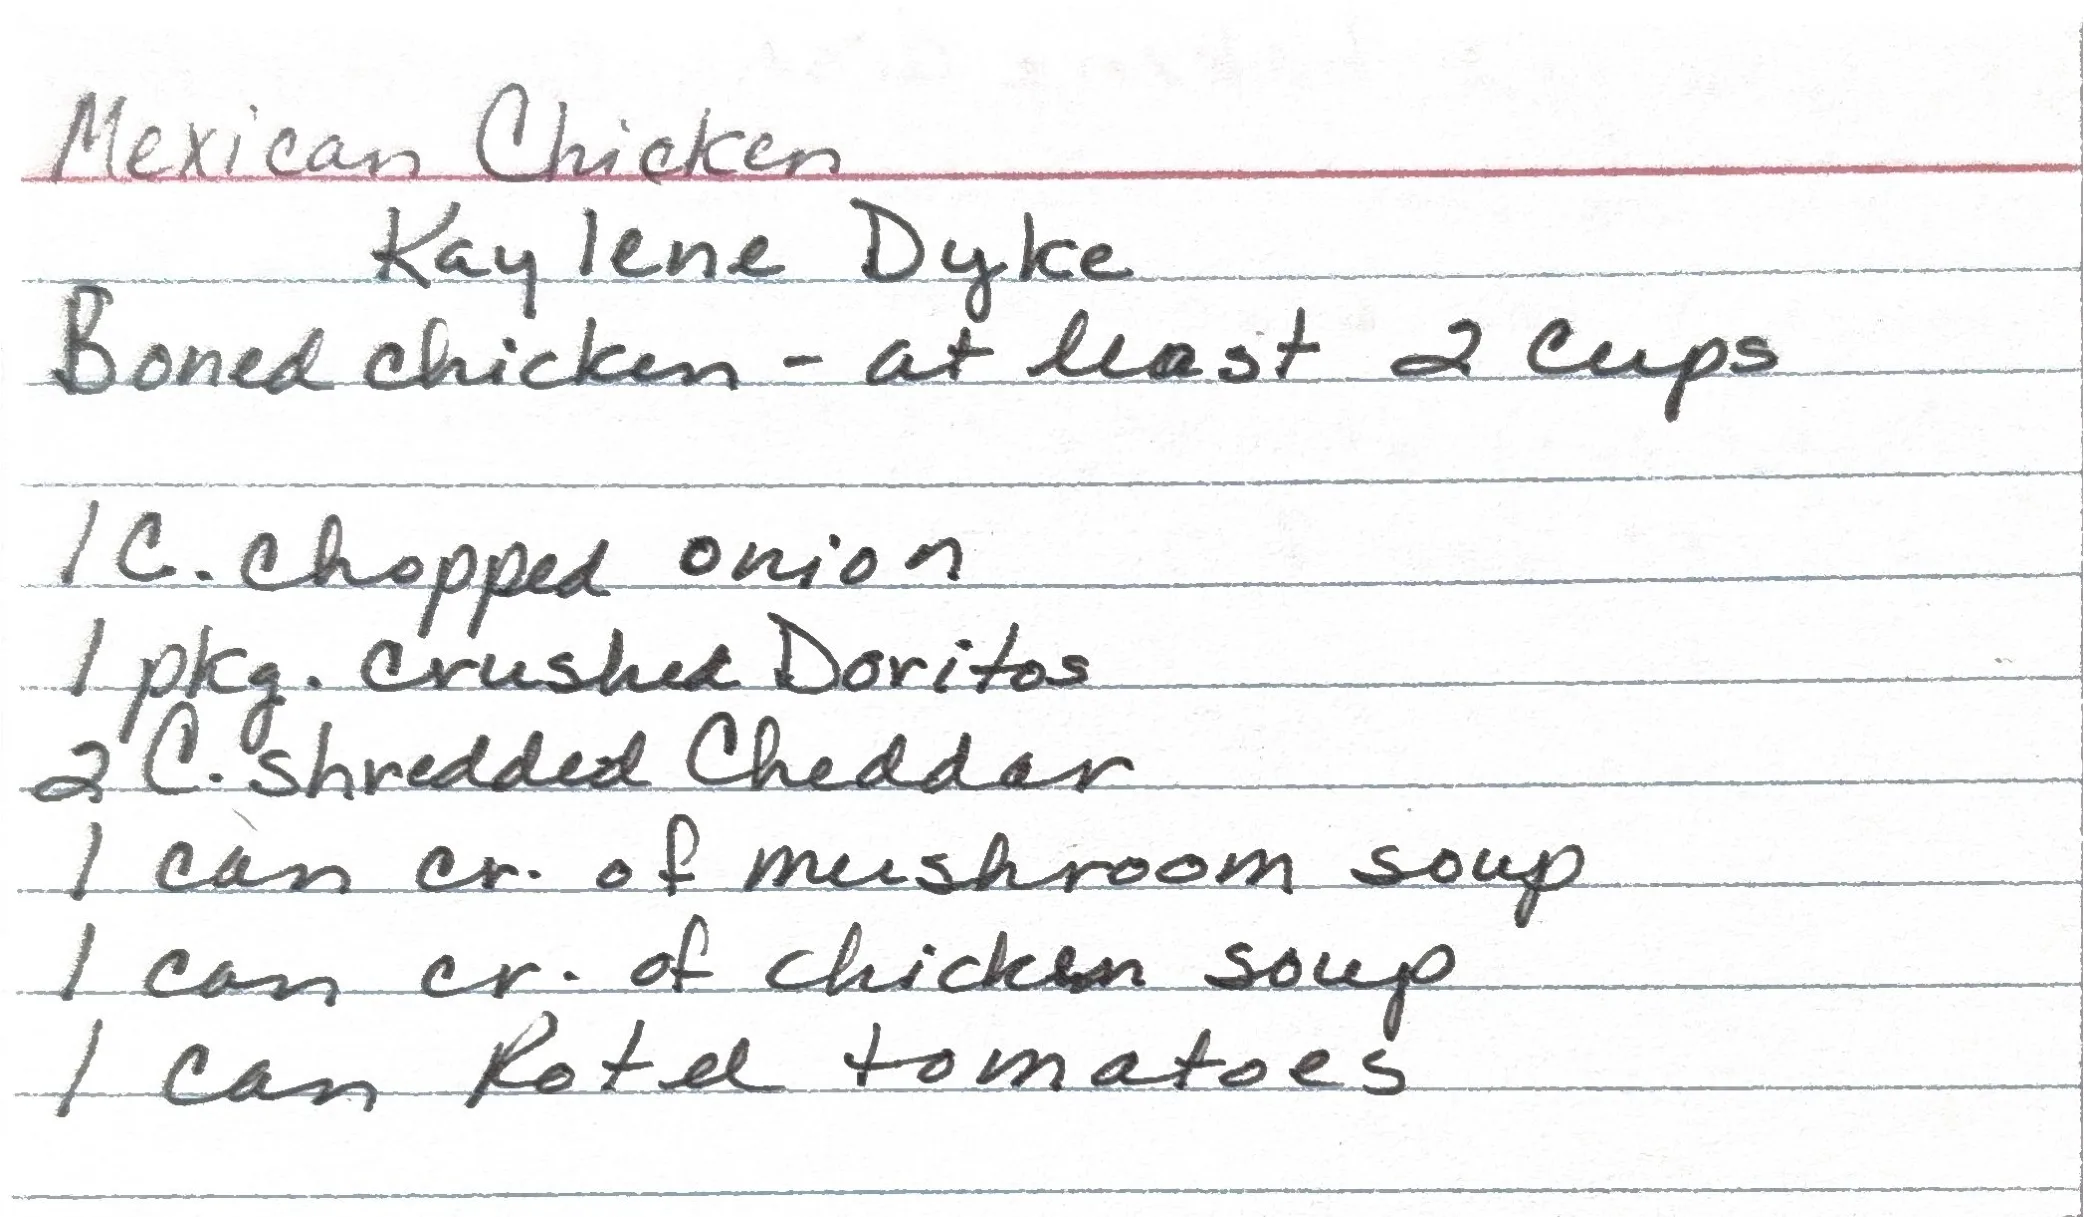 Mexican Chicken
Kaylene Dyke
Boned chicken - at least 2 cups
1 C. chopped onion
1 pkg. crushed Doritos
2 C. shredded Cheddar
1 can cr. of mushroom soup
1 can cr. of chicken soup
1 can Rotel tomatoes